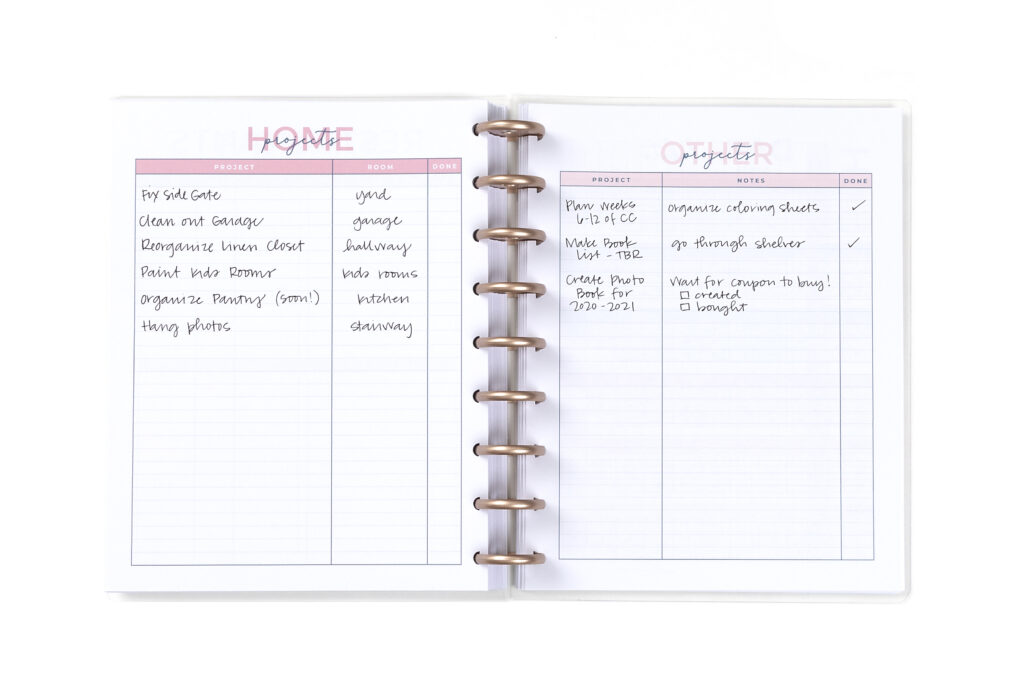 HOME projects
PROJECT ROOM DONE
Fix Side Gate yard
Clean out Garage garage
Reorganize Linen Closet hallway
Paint Kids Rooms kids rooms
Organize Pantry (soon!) kitchen
Hang photos stairway
OTHER projects
PROJECT NOTES DONE
Plan weeks organize coloring sheets ✓
6-12 of CC
Make Book go through shelves ✓
List - TBR
Create Photo Wait for coupon to buy!
Book for ☐ created
2020-2021 ☐ bought